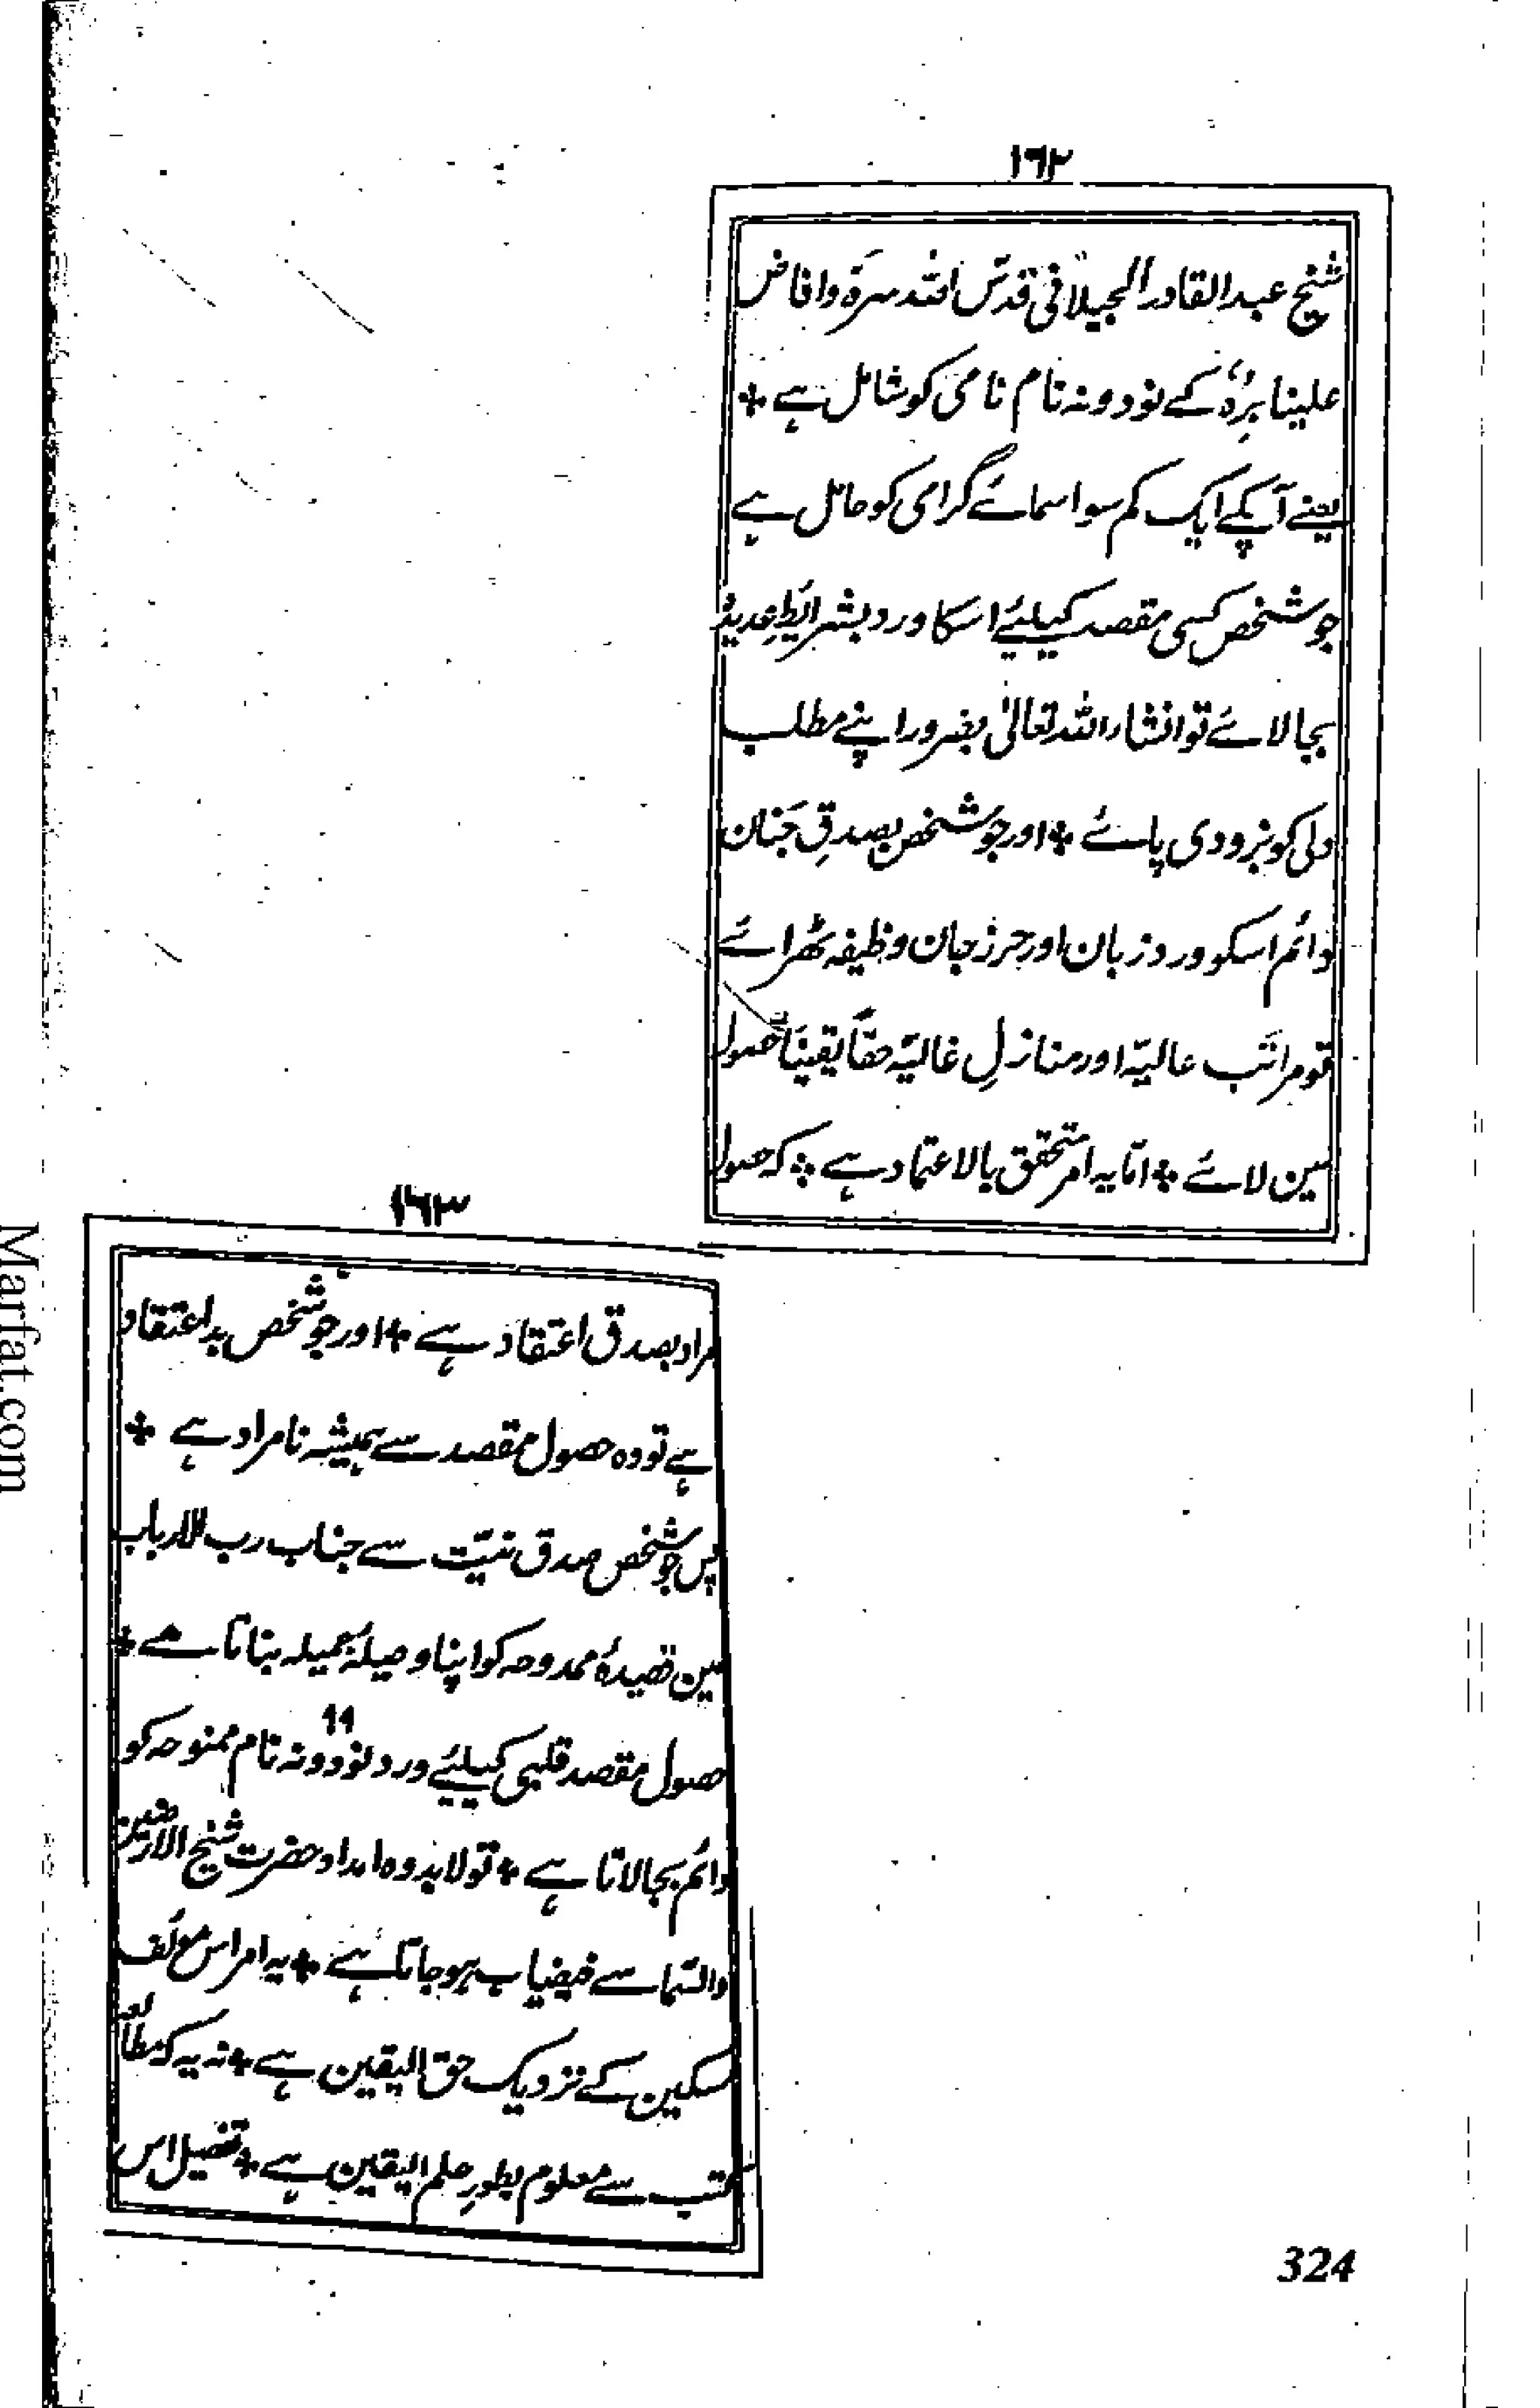 ۱۶۲
شیخ عبدالقادر الجیلانی قدّس اللہ سرّہٗ وافاض
علینا برّہٗ کے نود ونہ نام نامی کو شامل ہے *
یعنے آپکے ایک کم سو اسمائے گرامی کو حامل ہے
جو شخص کسی مقصد کیلئے اسکا ورد بشرائط عدیدہ
بجالائے تو انشاء اللہ تعالیٰ بضرور اپنے مطلب
دلی کو بزودی پائے * اور جو شخص بصدقِ جَنان
دائم اسکو ورد زبان اور حرز جان وظیفہ ٹھرائے
تو مراتب عالیّہ اور منازلِ غالیّہ حقاً یقیناً حصول
مین لائے * امّا یہ امر متحقق بالاعتماد ہے * کہ حصول
۱۶۳
مراد بصدق اعتقاد ہے * اور جو شخص بداعتقاد
ہے تو وہ حصول مقصد سے ہمیشہ نامراد ہے *
پس جو شخص صدق نیّت سے جناب رب الارباب
مین قصیدۂ ممدوحہ کو اپنا وصیلۂ جمیلہ بناتا ہے *
حصول مقصد قلبی کیلئے ورد نود ونہ ۹۹ نام ممنوحہ کو
دائم بجالاتا ہے * تو لابد وہ امداد حضرت شیخ الارضین
والسّما سے فیضیاب ہوجاتا ہے * یہ امر اس مؤلّف
مسکین کے نزدیک حق الیقین ہے * نہ یہ کہ مطالعۂ
کتب سے معلوم بطورِ علم الیقین ہے * تفصیل اس
324
Marfat.com